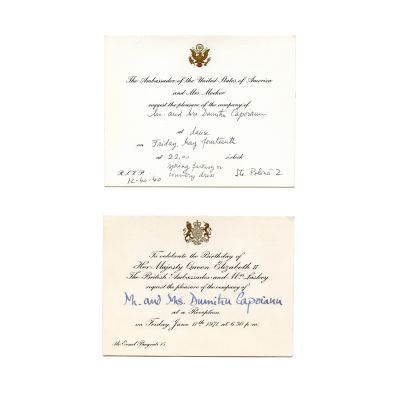 The Ambassador of the United States of America
and Mrs. Meeker
request the pleasure of the company of
Mr. and Mrs Dumitru Capoianu
at dance
on Friday, May fourteenth
at 22.00 o'clock
R.S.V.P.
12-40-40
spring fantasy or
country dress
Str. Polonă 2
To celebrate the Birthday of
Her Majesty Queen Elizabeth II
The British Ambassador and Mrs Laskey
request the pleasure of the company of
Mr. and Mrs. Dumitru Capoianu
at a Reception
on Friday June 11th 1971 at 6.30 p.m.
Str. Emil Bougnatz 15